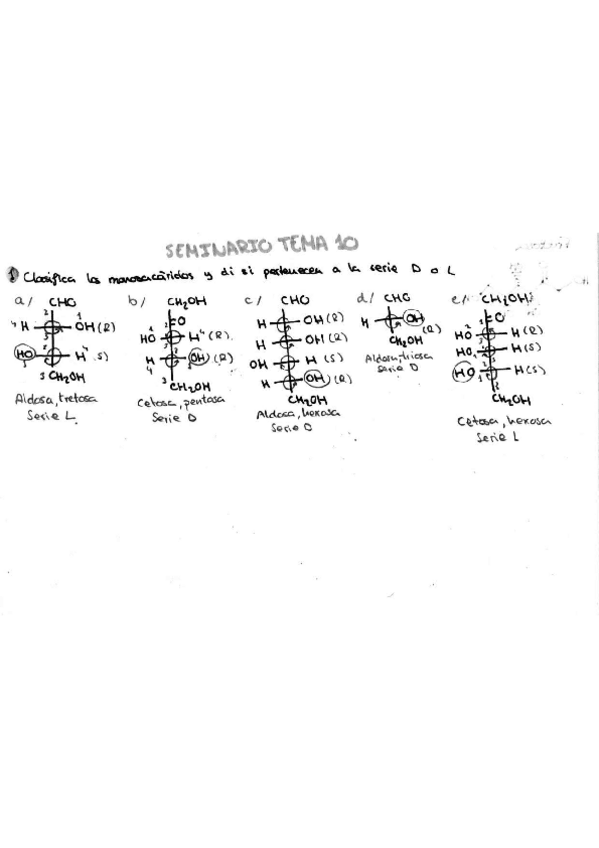 SEMINARIO TEMA 10
1 Clasifica los monosacáridos y di si pertenecen a la serie D o L
a/ CHO
4 H OH (R)
HO H 4 (S)
3 CH₂OH
Aldosa, tretosa
Serie L
b/ CH₂OH
O
HO H 4 (R)
H OH (R)
CH₂OH
Cetosa, pentosa
Serie D
c/ CHO
H OH (R)
H OH (R)
OH H (S)
H OH (R)
CH₂OH
Aldosa, hexosa
Serie D
d/ CHO
H OH
(R)
CH₂OH
Aldosa, triosa
Serie D
e/ CH₂OH
O
HO H (R)
HO H (S)
HO H (S)
CH₂OH
Cetosa, hexosa
Serie L